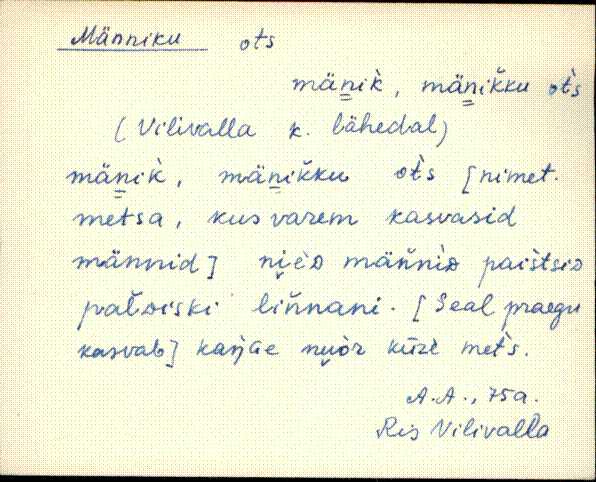 Männiku ots
mänik̀, mänik̆ku ot̀s
(Vilivalla k. lähedal)
mänik̀, mänik̆ku ot̀s [nimet.
metsa, kus varem kasvasid
männid] männìᴅ paist̆siᴅ
liňnani. [Seal praegu
kasvab] nuòr met̀s.
A.A., 75a.
Ris Vilivalla